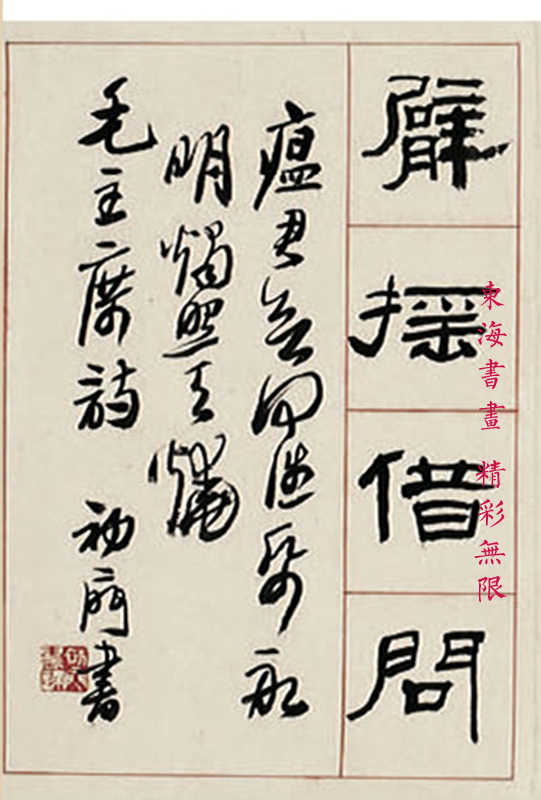 臂搖借問
瘟君欲何往紙船
明燭照天燒
毛主席詩 初書
東海書畫 精彩無限